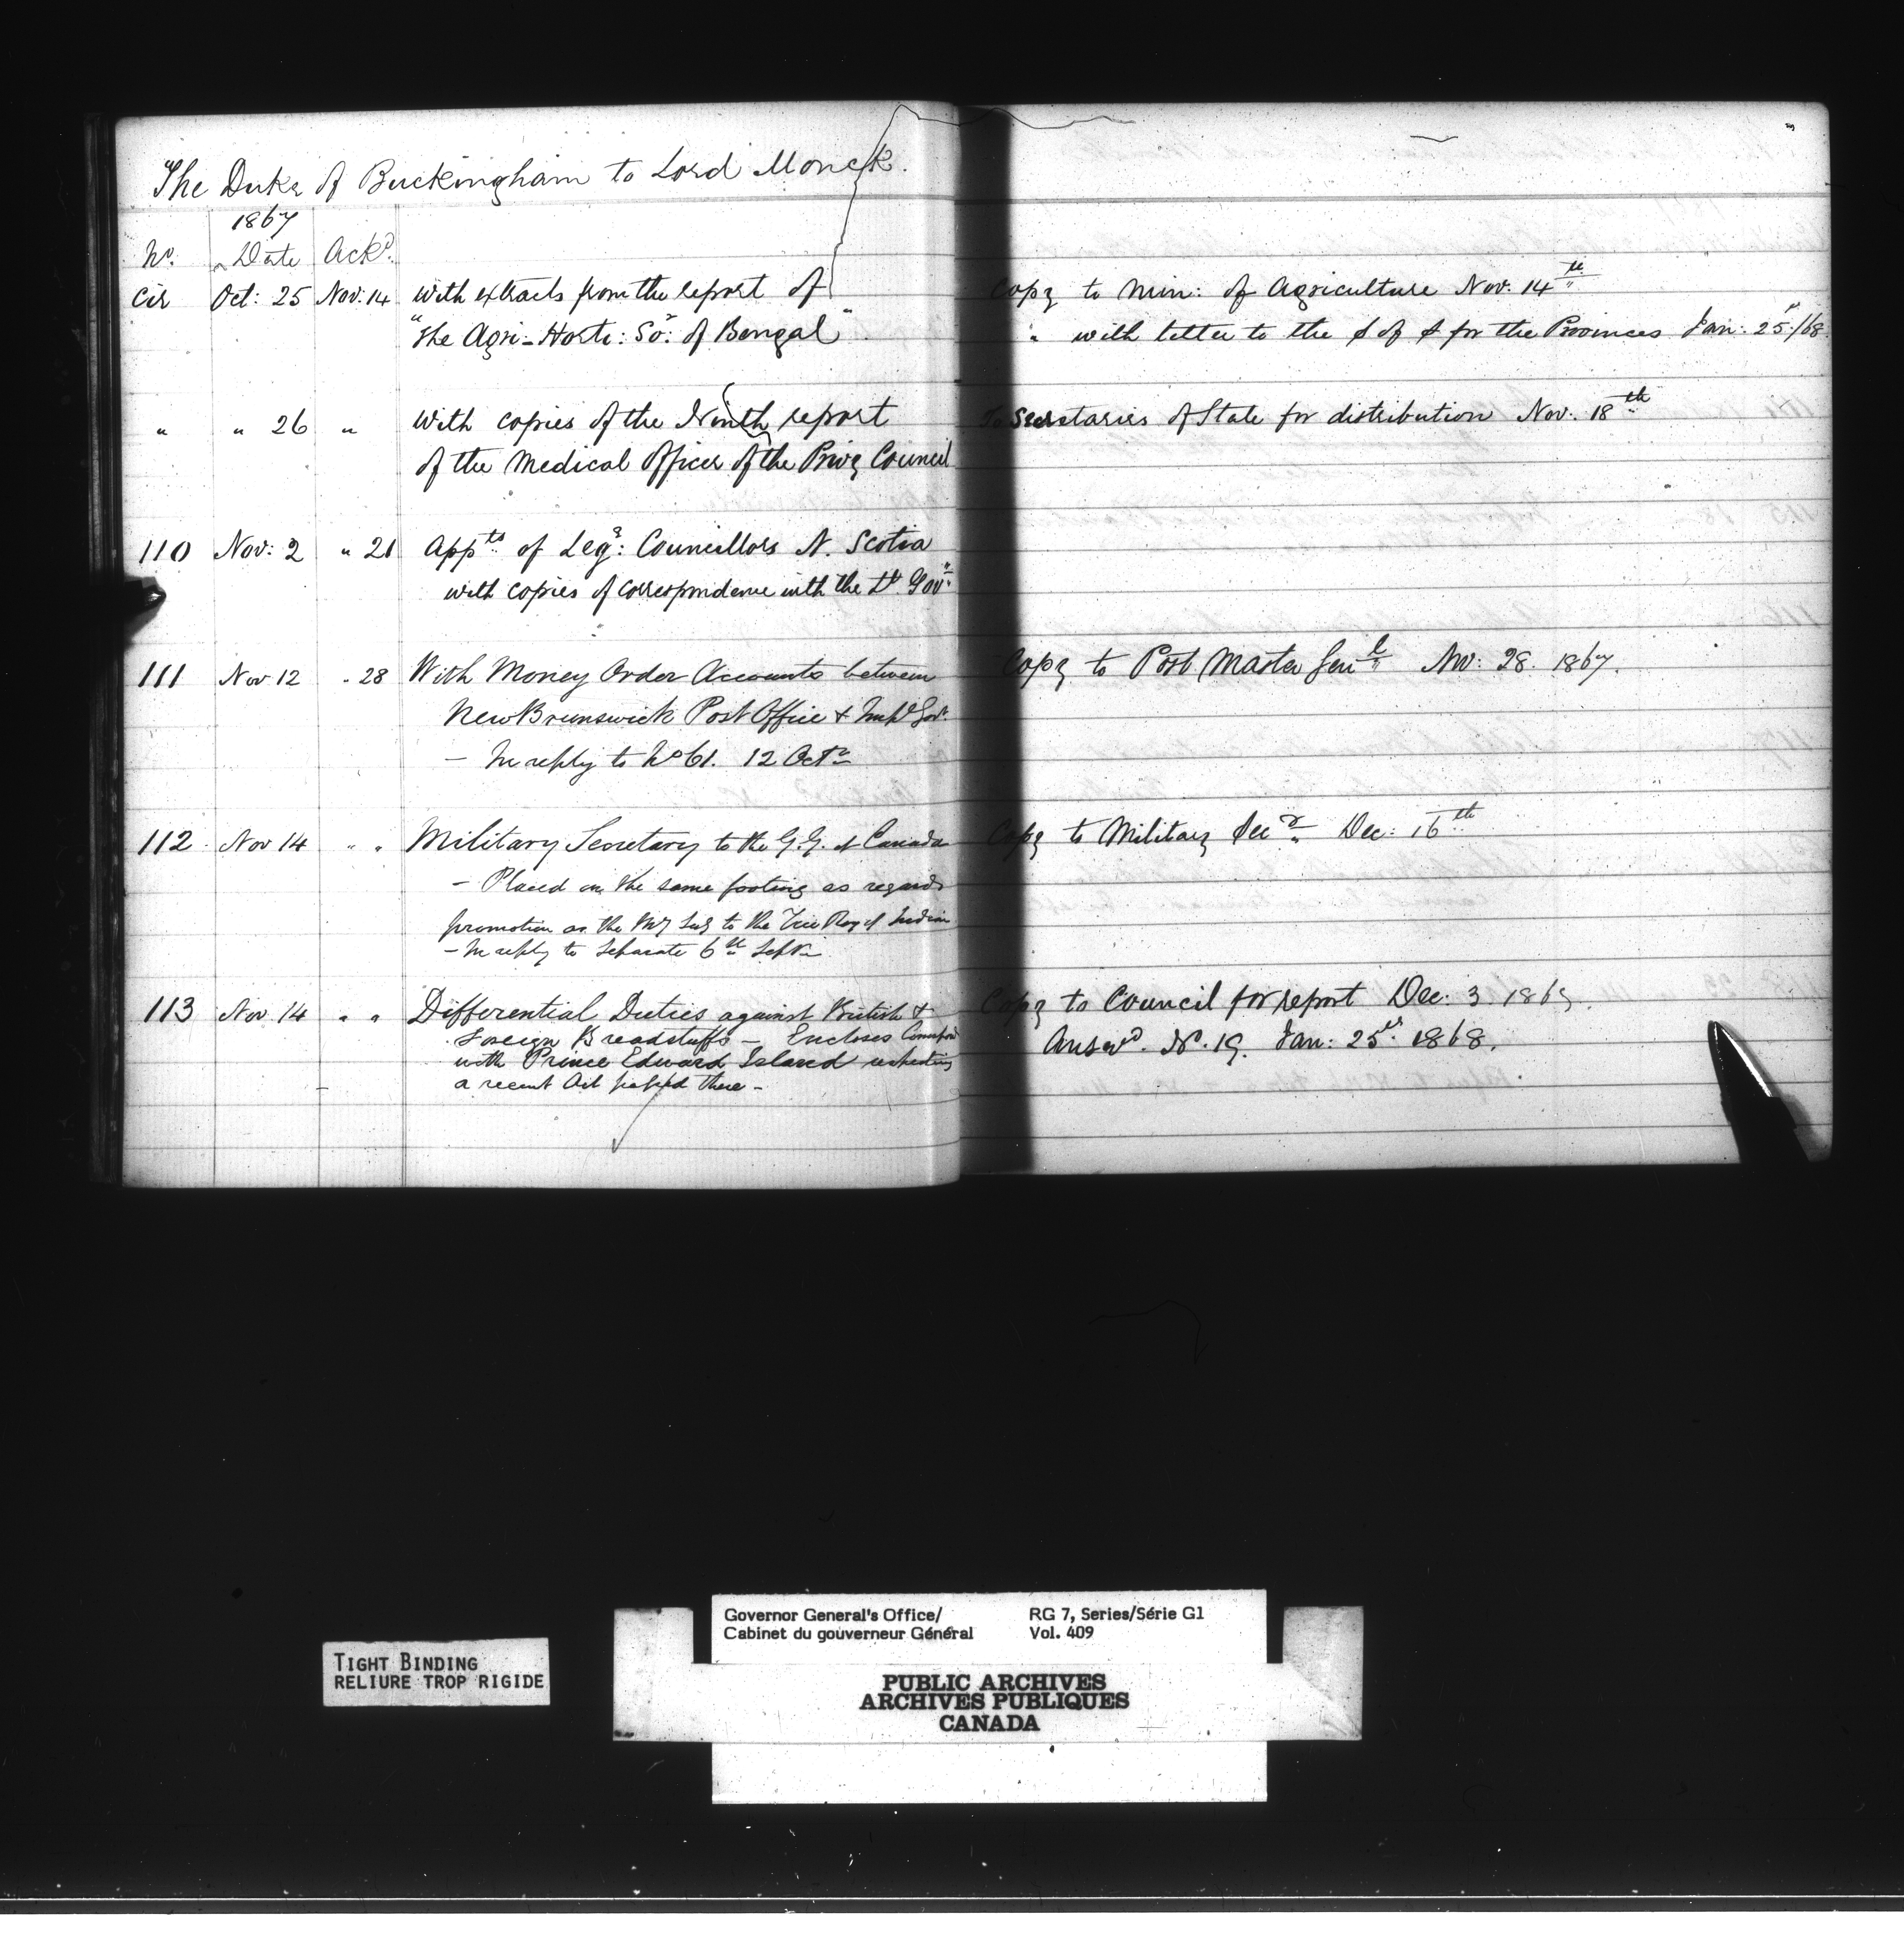 The Duke of Buckingham to Lord Monck.
1867
No. Date Ackd.
Cir Oct: 25 Nov: 14 with extracts from the report of Copy to Min: of Agriculture Nov. 14th
"The Agri-Horti: Soy: of Bengal" " with letter to the S of S for the Provinces Jan: 25/68
" " 26 " With copies of the Ninth report To Secretaries of State for distribution Nov: 18th
of the Medical Officer of the Privy Council
110 Nov: 2 " 21 Appts of Legve: Councillors N. Scotia
with copies of correspondence with the Lt Govr
111 Nov 12 " 28 With Money Order Accounts between Copy to Post Master Genl Nov: 28. 1867.
New Brunswick Post Office & Impl Govt.
— In reply to No 61. 12 Octr
112 Nov 14 " " Military Secretary to the G.G. of Canada Copy to Military Secy Dec: 16th
— Placed on the same footing as regards
promotion as the My Secy to the Vice Roy of India
— In reply to Separate 6th Septr
113 Nov. 14 " " Differential Duties against British & Copy to Council for report Dec. 3. 1867.
Foreign Breadstuffs — Encloses Correspce Answd. No. 19. Jan: 25th 1868.
with Prince Edward Island respecting
a recent Act passed there —
Governor General's Office/ RG 7, Series/Série G1
Cabinet du gouverneur Général Vol. 409
TIGHT BINDING
RELIURE TROP RIGIDE
PUBLIC ARCHIVES
ARCHIVES PUBLIQUES
CANADA